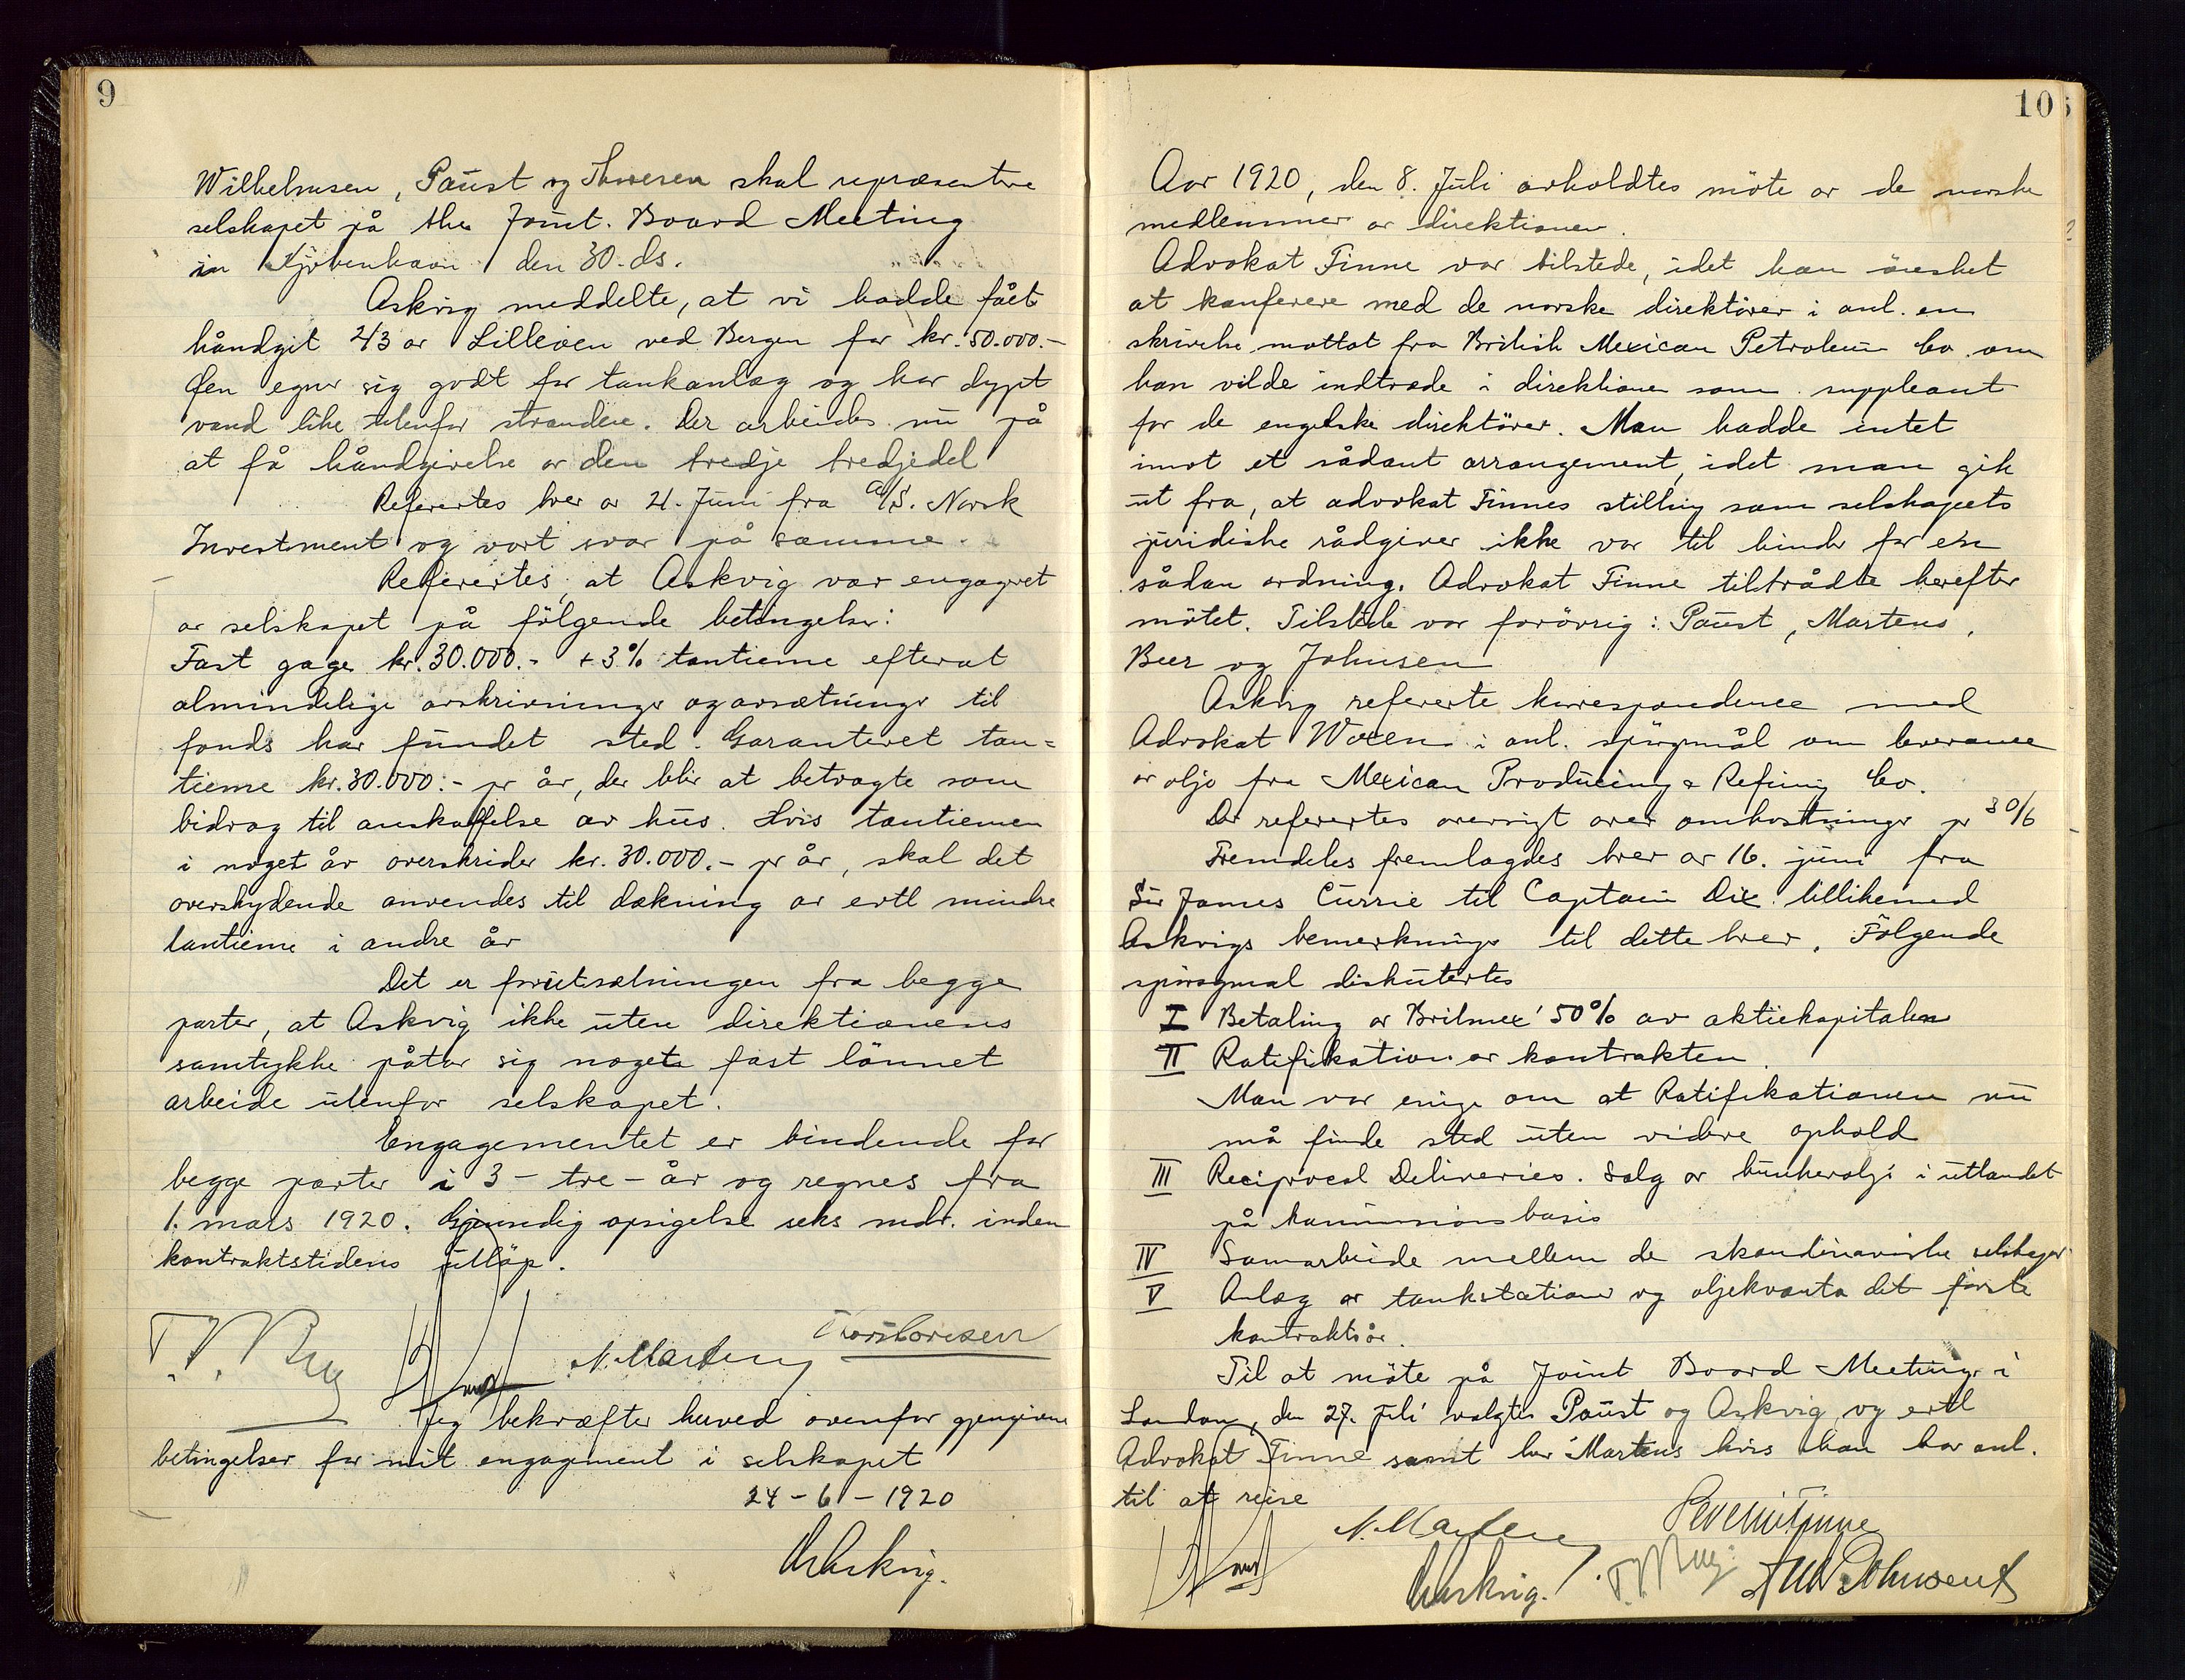 9
Wilhelmsen, Paust og Thoresen skal repræsentere
selskapet på the Joint. Board Meeting
in Kjøbenhavn den 30. ds.
Askvig meddelte, at vi hadde fået
håndgit 2/3 av Lilleöen ved Bergen for kr. 50.000.-
Öen egner sig godt for tankanlæg og har dypt
vand like utenfor strandene. Der arbeides nu på
at få håndgivelse av den tredje tredjedel
Refertes brev av 21. Juni fra A/S. Norsk
Investment og vort svar på samme.
Refertes, at Askvig var engageret
av selskapet på fölgende betingelser:
Fast gage kr. 30.000.- + 3% tantieme efterat
almindelige avskrivninger og avsætninger til
fonds har fundet sted. Garanteret tan=
tieme kr. 30.000.- pr år, der blir at betragte som
bidrag til anskaffelse av hus. Hvis tantiemen
i noget år overskrider kr. 30.000.- pr år, skal det
overskydende anvendes til dækning av evtl mindre
tantieme i andre år
Det er forutsætningen fra begge
parter, at Askvig ikke uten direktionens
samtykke påtar sig noget fast lönnet
arbeide utenfor selskapet.
Engagementet er bindende for
begge parter i 3 - tre - år og regnes fra
1. mars 1920. Gjensidig opsigelse seks mdr. inden
kontraktstidens utlöp.
Thorsthoresen
N. Martens
Jeg bekræfter herved ovenfor gjengivne
betingelser for mit engagement i selskapet
24 - 6 - 1920
Askvig.
10
Aar 1920, den 8. Juli avholdtes möte av de norske
medlemmer av direktionen.
Advokat Finne var tilstede, idet han önsket
at konferere med de norske direktörer i anl. en
skrivelse mottat fra British Mexican Petroleum Co. om
han vilde indtræde i direktionen som suppleant
for de engelske direktörer. Man hadde intet
imot et sådant arrangement, idet man gik
ut fra, at advokat Finnes stilling som selskapets
juridiske rådgiver ikke var til hinder for en
sådan ordning. Advokat Finne tiltrådte herefter
mötet. Tilstede var forövrig: Paust, Martens,
Beer og Johnsen
Askvig refererte korrespondence med
Advokat i anl. spörgsmål om leverance
av olje fra Mexican Producing & Refining Co.
Der refertes oversigt over omkostninger pr 30/6
Fremdeles fremlagdes brev av 16. juni fra
Sir James Currie til Captain Dix tillikemed
Askvigs bemerkninger til dette brev. Fölgende
spörsgmal diskutertes
I Betaling av Britmex' 50% av aktiekapitalen
II Ratifikation av kontrakten.
Man var enige om at Ratifikationen nu
må finde sted uten videre ophold
III Reciprocal Deliveries. Salg av bunkerolje i utlandet
på kommissionsbasis
IV Samarbeide mellem de skandinaviske selskaper
V Anlæg av tankstationer og oljekvanta det förste
kontraktsår.
Til at möte på Joint Board Meeting i
London, den 27. Juli valgtes Paust og Askvig og evtl
Advokat Finne samt hr Martens hvis han har anl.
til at reise
N. Martens
Askvig.
Johnsen